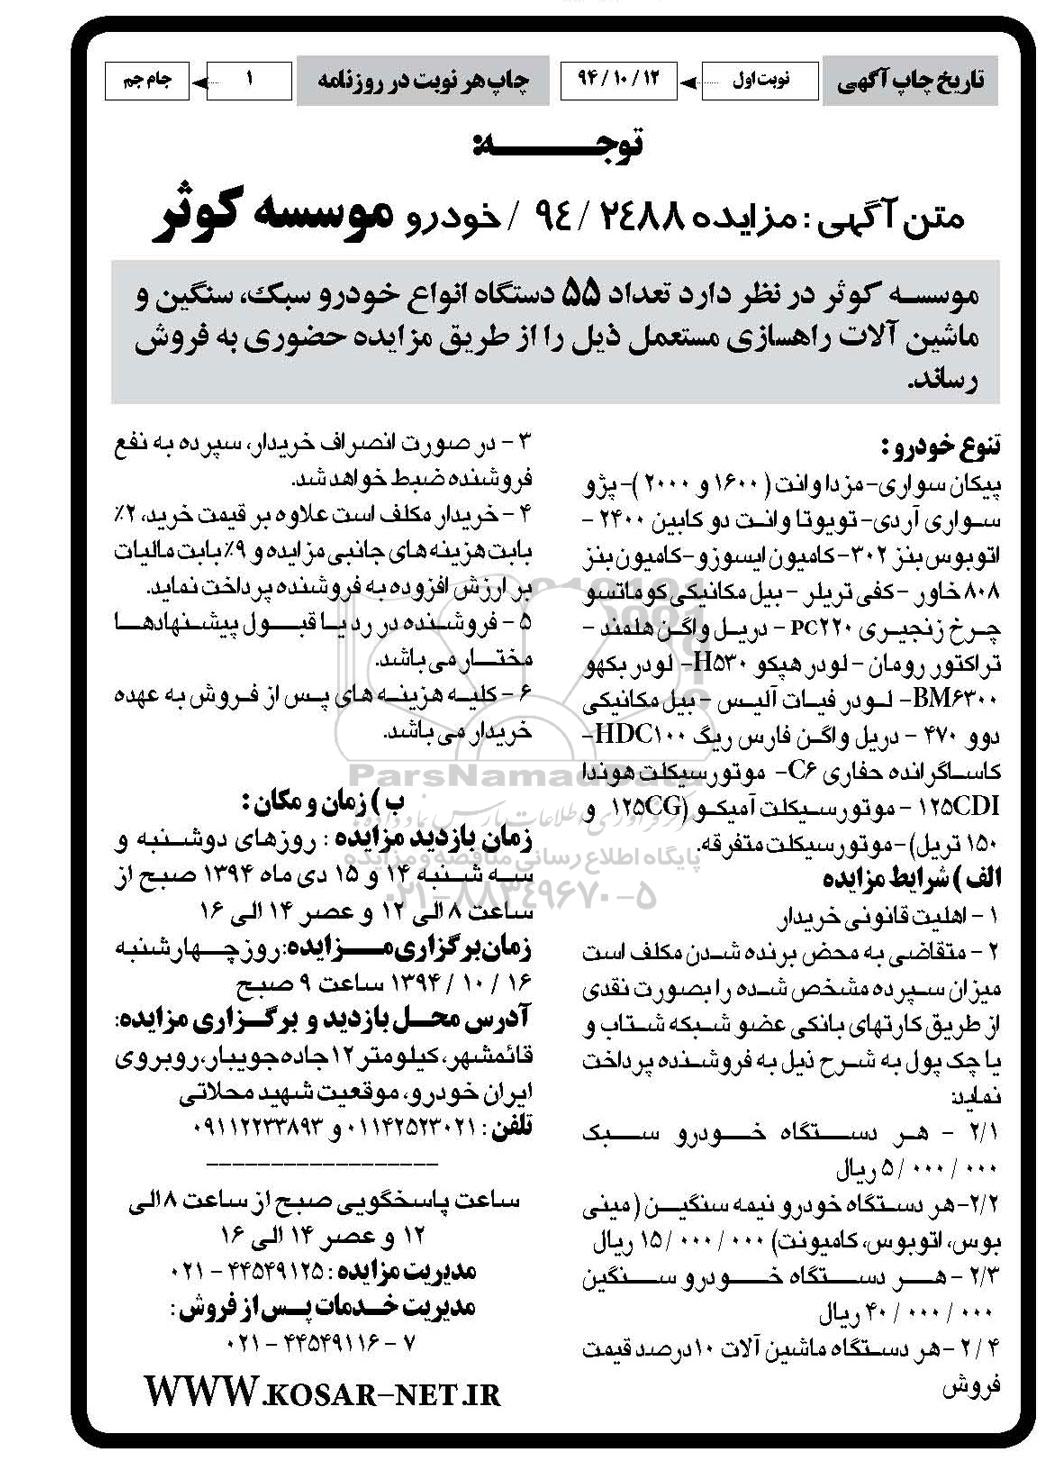 تاریخ چاپ آگهی
نوبت اول
۹۴/۱۰/۱۲
چاپ هر نوبت در روزنامه
۱
جام جم
توجـــــــه:
متن آگهی: مزایده ۲۴۸۸ / ۹۴ / خودرو موسسه کوثر
موسسه کوثر در نظر دارد تعداد ۵۵ دستگاه انواع خودرو سبک، سنگین و
ماشین آلات راهسازی مستعمل ذیل را از طریق مزایده حضوری به فروش
رساند.
تنوع خودرو:
پیکان سواری-مزدا وانت (۱۶۰۰ و ۲۰۰۰)-پژو
سواری آردی-تویوتا وانت دو کابین ۲۴۰۰ -
اتوبوس بنز ۳۰۲-کامیون ایسوزو-کامیون بنز
۸۰۸ خاور -کفی تریلر - بیل مکانیکی کوماتسو
چرخ زنجیری PC۲۲۰ - دریل واگن هلمند -
تراکتور رومان -لودر هپکو H۵۳۰- لودر بکهو
BM۶۳۰۰- لودر فیات آلیس -بیل مکانیکی
دوو ۴۷۰ - دریل واگن فارس ریگ HDC۱۰۰-
کاساگرانده حفاری C۶- موتورسیکلت هوندا
۱۲۵CDI - موتورسیکلت آمیکو (۱۲۵CG و
۱۵۰ تریل)-موتورسیکلت متفرقه.
الف) شرایط مزایده
۱ - اهلیت قانونی خریدار
۲ - متقاضی به محض برنده شدن مکلف است
میزان سپرده مشخص شده را بصورت نقدی
از طریق کارتهای بانکی عضو شبکه شتاب و
یا چک پول به شرح ذیل به فروشنده پرداخت
نماید:
۲/۱ - هر دستگاه خودرو سبک
۵/۰۰۰/۰۰۰ ریال
۲/۲-هر دستگاه خودرو نیمه سنگین (مینی
بوس، اتوبوس، کامیونت) ۱۵/۰۰۰/۰۰۰ ریال
۲/۳ -هر دستگاه خودرو سنگین
۴۰/۰۰۰/۰۰۰ ریال
۲/۴ -هر دستگاه ماشین آلات ۱۰درصد قیمت
فروش
۳ - در صورت انصراف خریدار، سپرده به نفع
فروشنده ضبط خواهد شد.
۴ -خریدار مکلف است علاوه بر قیمت خرید، ۲٪
بابت هزینه های جانبی مزایده و ۹٪ بابت مالیات
بر ارزش افزوده به فروشنده پرداخت نماید.
۵ - فروشنده در رد یا قبول پیشنهادها
مختار می باشد.
۶ -کلیه هزینه های پس از فروش به عهده
خریدار می باشد.
ParsNamadData
ب) زمان و مکان:
زمان بازدید مزایده: روزهای دوشنبه و
سه شنبه ۱۴ و ۱۵ دی ماه ۱۳۹۴ صبح از
ساعت ۸ الی ۱۲ و عصر ۱۴ الی ۱۶
زمان برگزاری مـزایده:روز چهارشنبه
۱۶/ ۱۰ / ۱۳۹۴ ساعت ۹ صبح
آدرس محل بازدید و برگزاری مزایده:
قائمشهر، کیلومتر ۱۲جاده جویبار،روبروی
ایران خودرو، موقعیت شهید محلاتی
تلفن: ۰۱۱۴۲۵۲۳۰۲۱و ۰۹۱۱۲۲۳۳۸۹۳
پایگاه اطلاع رسانی مناقصه و مزایده
۰۲۱-۸۸۳۴۹۶۷۰-۵
ساعت پاسخگویی صبح از ساعت ۸ الی
۱۲ و عصر ۱۴ الی ۱۶
مدیریت مزایده: ۴۴۵۴۹۱۲۵ - ۰۲۱
مدیریت خدمات پس از فروش:
۷ - ۴۴۵۴۹۱۱۶ - ۰۲۱
WWW.KOSAR-NET.IR